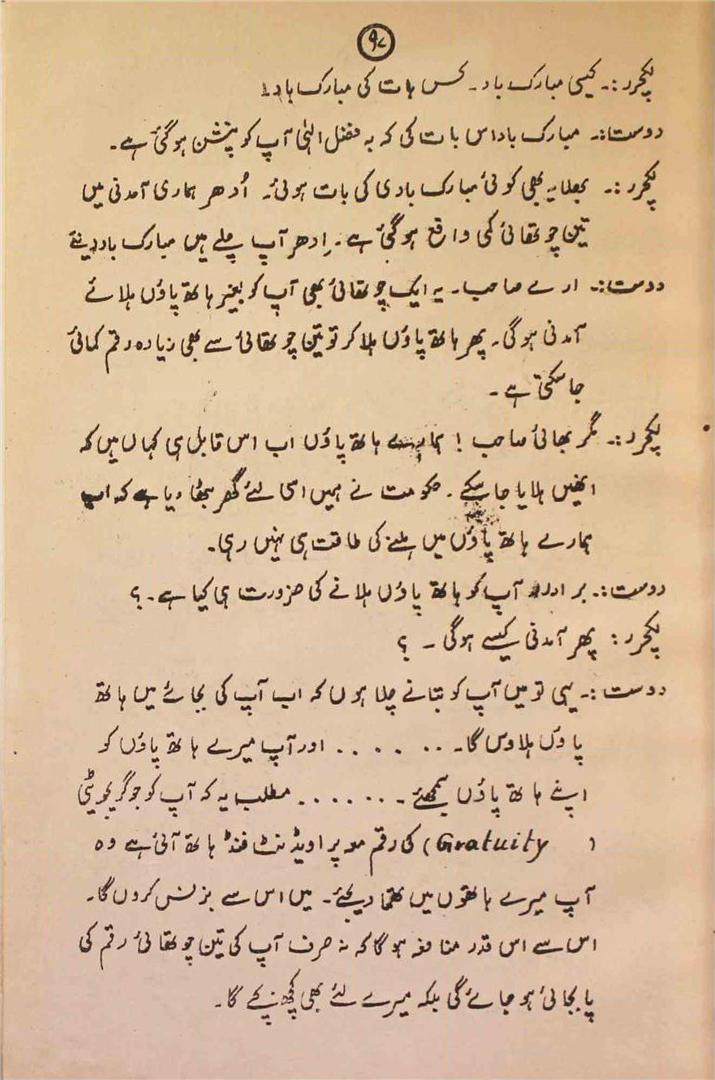 ۹۷
لکچرر:۔ کیسی مبارک باد۔ کس بات کی مبارک باد!
دوست:۔ مبارک باد اس بات کی کہ بہ فضل الٰہی آپ کو پنشن ہوگئی ہے۔
لکچرر:۔ بھلا یہ بھی کوئی مبارک بادی کی بات ہوئی۔ اُدھر ہماری آمدنی میں
تین چوتھائی کمی واقع ہوگئی ہے۔ اِدھر آپ چلے ہیں مبارک باد دینے
دوست:۔ ارے صاحب۔ یہ ایک چوتھائی بھی آپ کو بغیر ہاتھ پاؤں ہلائے
آمدنی ہوگی۔ پھر ہاتھ پاؤں ہلا کر تو تین چوتھائی سے بھی زیادہ رقم کمائی
جاسکتی ہے۔
لکچرر:۔ مگر بھائی صاحب! ہمارے ہاتھ پاؤں اب اس قابل ہی کہاں ہیں کہ
انھیں ہلایا جاسکے۔ حکومت نے ہمیں اسی لئے گھر بٹھا دیا ہے کہ اب
ہمارے ہاتھ پاؤں میں ہلنے کی طاقت ہی نہیں رہی۔
دوست:۔ برادر آپ کو ہاتھ پاؤں ہلانے کی ضرورت ہی کیا ہے۔؟
لکچرر: پھر آمدنی کیسے ہوگی ۔ ؟
دوست:۔ یہی تو میں آپ کو بتانے چلا ہوں کہ اب آپ کی بجائے میں ہاتھ
پاؤں ہلاوں گا۔ ۔۔ . . . . اور آپ میرے ہاتھ پاؤں کو
اپنے ہاتھ پاؤں سمجھئے ۔ ۔ ۔ . . . . مطلب یہ کہ آپ کو جو گریجویٹی
(Gratuity) کی رقم معہ پراویڈنٹ فنڈ ہاتھ آئی ہے وہ
آپ میرے ہاتھوں میں تھما دیجئے۔ میں اس سے بزنس کروں گا۔
اس سے اس قدر منافعہ ہوگا کہ نہ صرف آپ کی تین چوتھائی رقم کی
پابجائی ہوجائے گی بلکہ میرے لئے بھی کچھ بچے گا۔